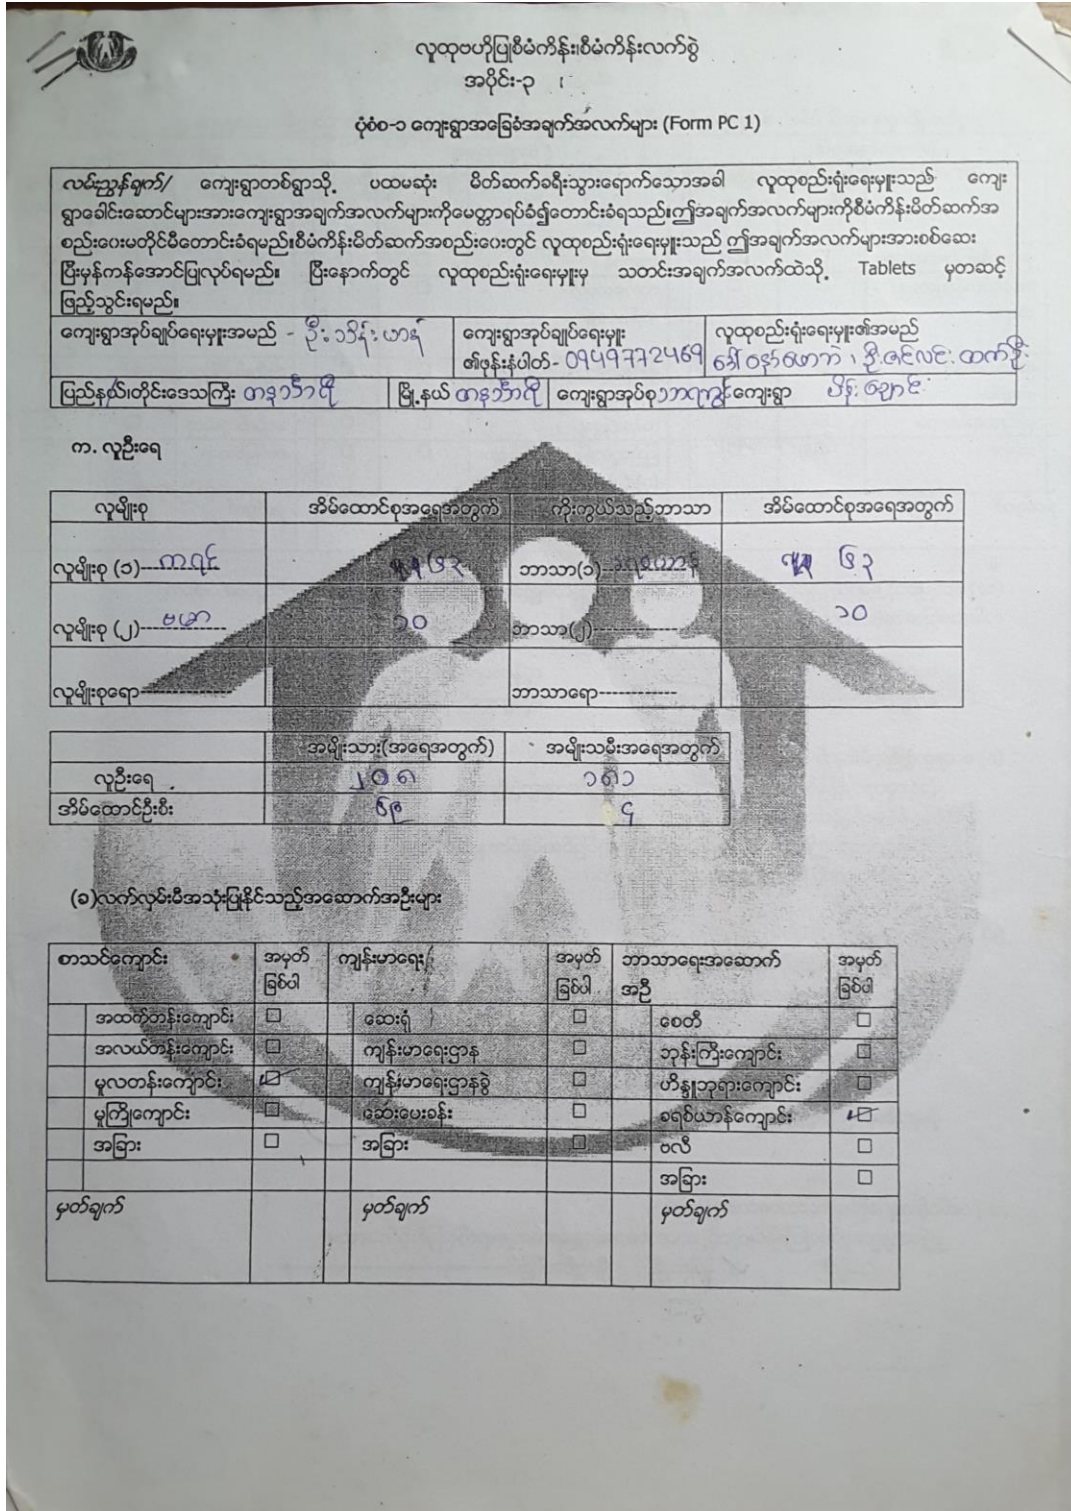 လူထုဗဟိုပြုစီမံကိန်း၊စီမံကိန်းလက်စွဲ
အပိုင်း-၃
ပုံစံစ-၁ ကျေးရွာအခြေခံအချက်အလက်များ (Form PC 1)
လမ်းညွှန်ချက်/ ကျေးရွာတစ်ရွာသို့ ပထမဆုံး မိတ်ဆက်ခရီးသွားရောက်သောအခါ လူထုစည်းရုံးရေးမှူးသည် ကျေး
ရွာခေါင်းဆောင်များအားကျေးရွာအချက်အလက်များကိုမေတ္တာရပ်ခံ၍တောင်းခံရသည်။ဤအချက်အလက်များကိုစီမံကိန်းမိတ်ဆက်အ
စည်းဝေးမတိုင်မီတောင်းခံရမည်။စီမံကိန်းမိတ်ဆက်အစည်းဝေးတွင် လူထုစည်းရုံးရေးမှူးသည် ဤအချက်အလက်များအားစစ်ဆေး
ပြီးမှန်ကန်အောင်ပြုလုပ်ရမည်။ ပြီးနောက်တွင် လူထုစည်းရုံးရေးမှူးမှ သတင်းအချက်အလက်ထဲသို့ Tablets မှတဆင့်
ဖြည့်သွင်းရမည်။
ကျေးရွာအုပ်ချုပ်ရေးမှူးအမည် - ဦးသိန်းဟန် ကျေးရွာအုပ်ချုပ်ရေးမှူး လူထုစည်းရုံးရေးမှူး၏အမည်
၏ဖုန်းနံပါတ်- 0949772469 ဒေါ်နော်ဖောဘဲ ၊ ဦးဇင်လင်းထက်ဦး
ပြည်နယ်/တိုင်းဒေသကြီး တနင်္သာရီ မြို့နယ် တနင်္သာရီ ကျေးရွာအုပ်စု ကျေးရွာ
က. လူဦးရေ
လူမျိုးစု အိမ်ထောင်စုအရေအတွက် ကိုးကွယ်သည့်ဘာသာ အိမ်ထောင်စုအရေအတွက်
လူမျိုးစု (၁)---ကရင် ၆၃ ဘာသာ(၁)--ခရစ်ယာန် ၆၃
လူမျိုးစု (၂)---ဗမာ ၁၀ ဘာသာ(၂)------------- ၁၀
လူမျိုးစုရော-------------- ဘာသာရော------------
အမျိုးသား(အရေအတွက်) အမျိုးသမီးအရေအတွက်
လူဦးရေ ၂၀၈ ၁၈၁
အိမ်ထောင်ဦးစီး ၆၉ ၄
(ခ)လက်လှမ်းမီအသုံးပြုနိုင်သည့်အဆောက်အဦးများ
စာသင်ကျောင်း အမှတ် ကျန်းမာရေး အမှတ် ဘာသာရေးအဆောက် အမှတ်
ခြစ်ပါ ခြစ်ပါ အဦ ခြစ်ပါ
အထက်တန်းကျောင်း ☐ ဆေးရုံ ☐ စေတီ ☐
အလယ်တန်းကျောင်း ☐ ကျန်းမာရေးဌာန ☐ ဘုန်းကြီးကျောင်း ☐
မူလတန်းကျောင်း ☑ ကျန်းမာရေးဌာနခွဲ ☐ ဟိန္ဒူဘုရားကျောင်း ☐
မူကြိုကျောင်း ☐ ဆေးပေးခန်း ☐ ခရစ်ယာန်ကျောင်း ☑
အခြား ☐ အခြား ☐ ဗလီ ☐
အခြား ☐
မှတ်ချက် မှတ်ချက် မှတ်ချက်